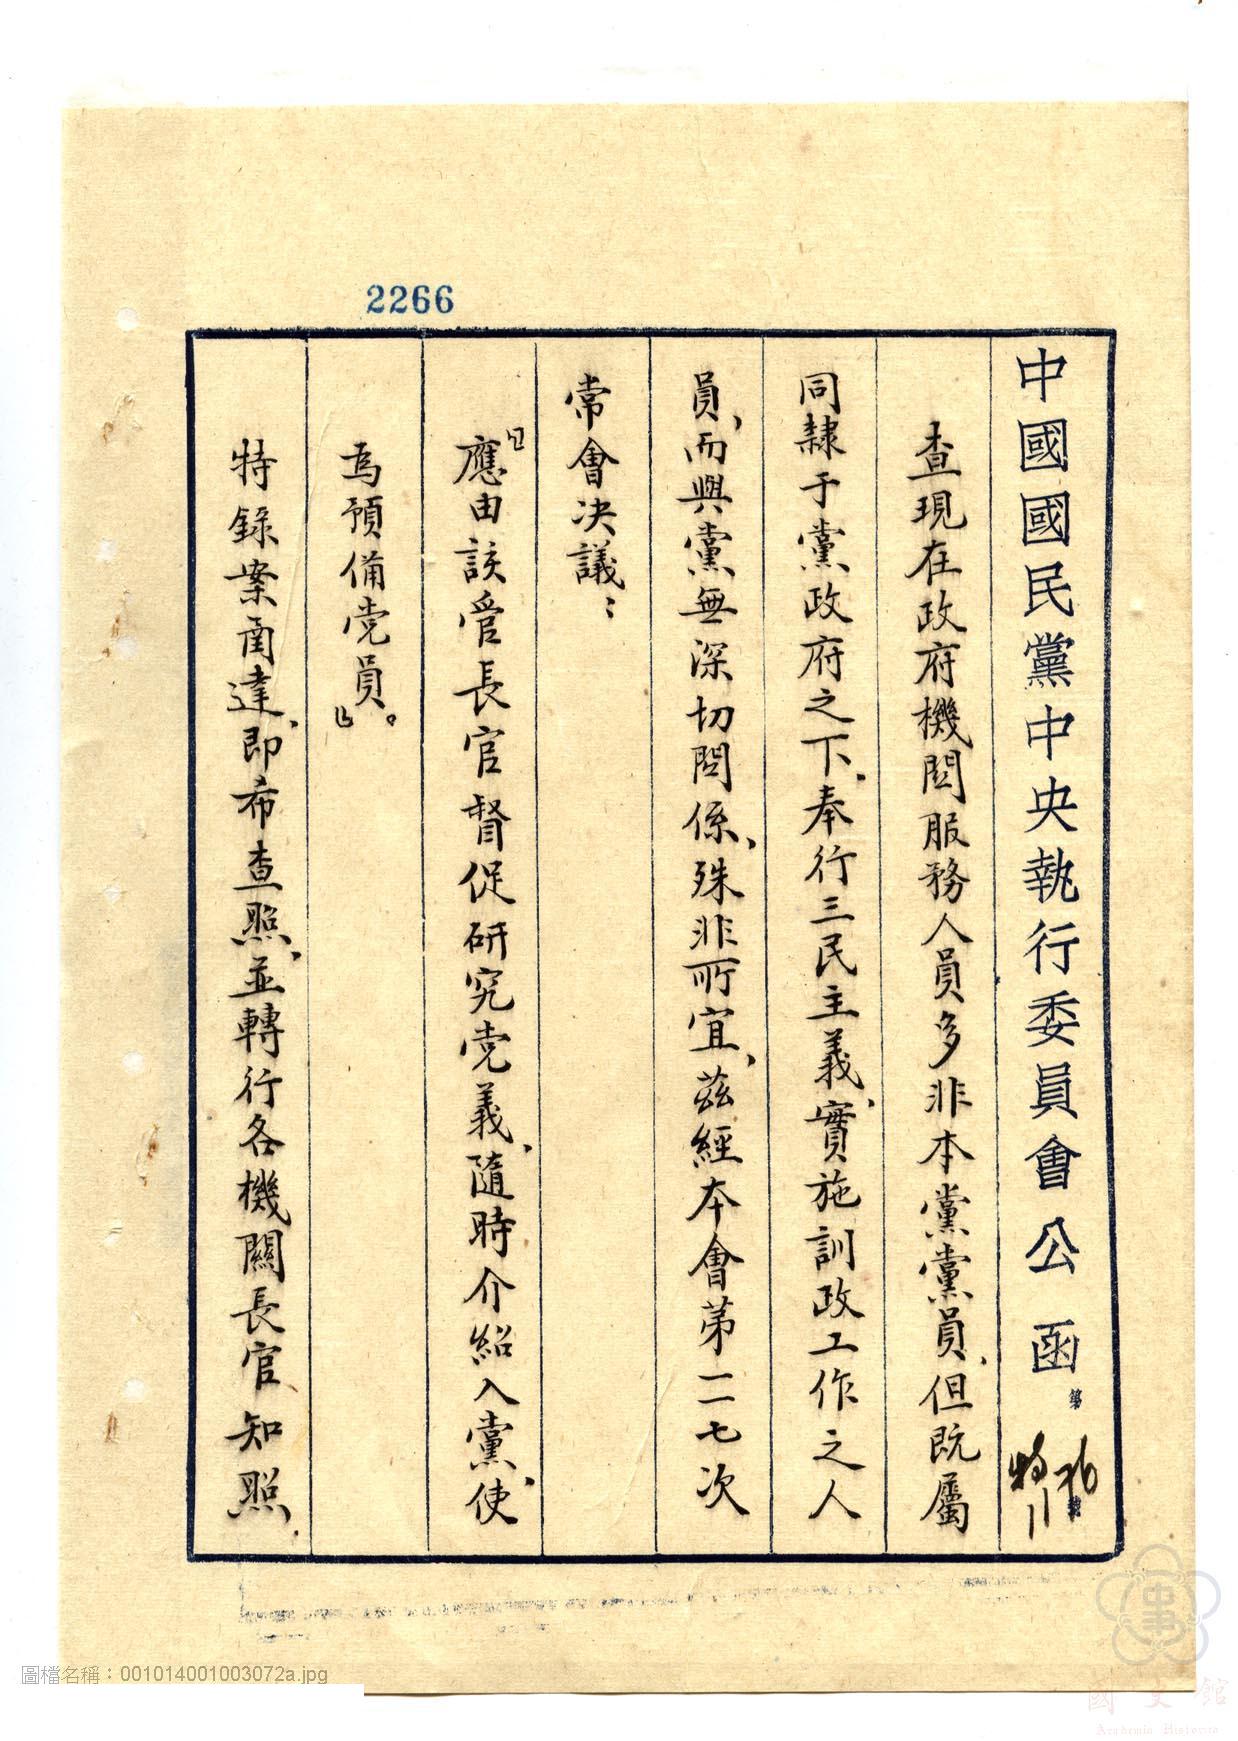 2266
中國國民黨中央執行委員會公函
第
號
查現在政府機関服務人員多非本黨黨員、但既屬
同隷于黨政府之下、奉行三民主義、實施訓政工作之人
員、而與黨無深切関係、殊非所宜、茲經本會第一二七次
常會决議：
「應由該管長官督促研究党義、隨時介紹入黨、使
為預備党員。」
特錄案函達、即希查照、並轉行各機關長官知照、
圖檔名稱：001014001003072a.jpg
國史館
Academia Historica